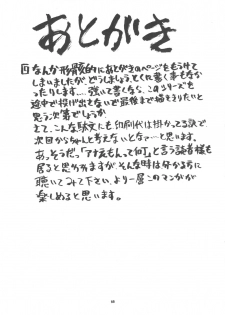 あとがき
回なんか形骸的にあとがきのページをもうけて
しまいましたが、どうしましょう、とくに書く事もなか
ったりします‥‥。強いて書くなら、このシリーズも
途中で投げ出さないで最後まで描ききりたいと
思う次第でしょうか
さて、こんな駄文にも印刷代は掛かってる訳で
次回からちゃんと考えないとなァ…と思います。
あっそうだっ「アナえもんって何」と言う読者様も
居ると思われますが、そんな時は分かる方に
聴いてみて下さい。より一層このマンガが
楽しめると思います。